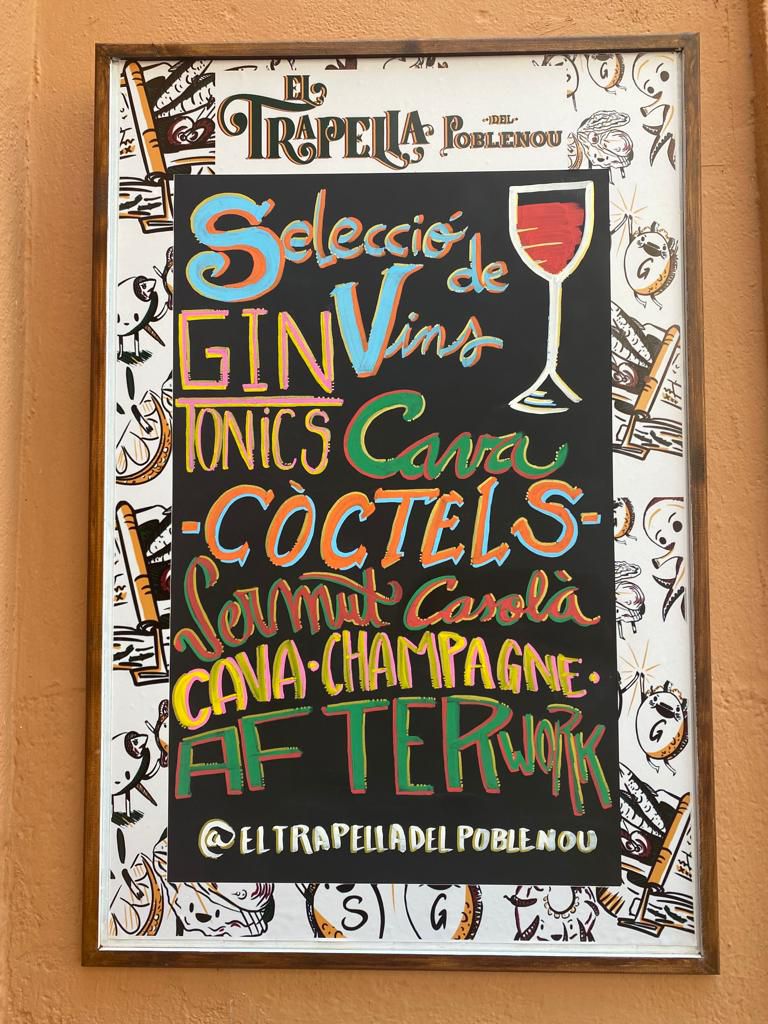 EL
TRAPELLA DEL POBLENOU
Selecció de
Vins
GIN
TONICS
Cava
-CÒCTELS-
Vermut Casolà
CAVA·CHAMPAGNE·
AFTERWORK
@ELTRAPELLADELPOBLENOU
G
G
S G